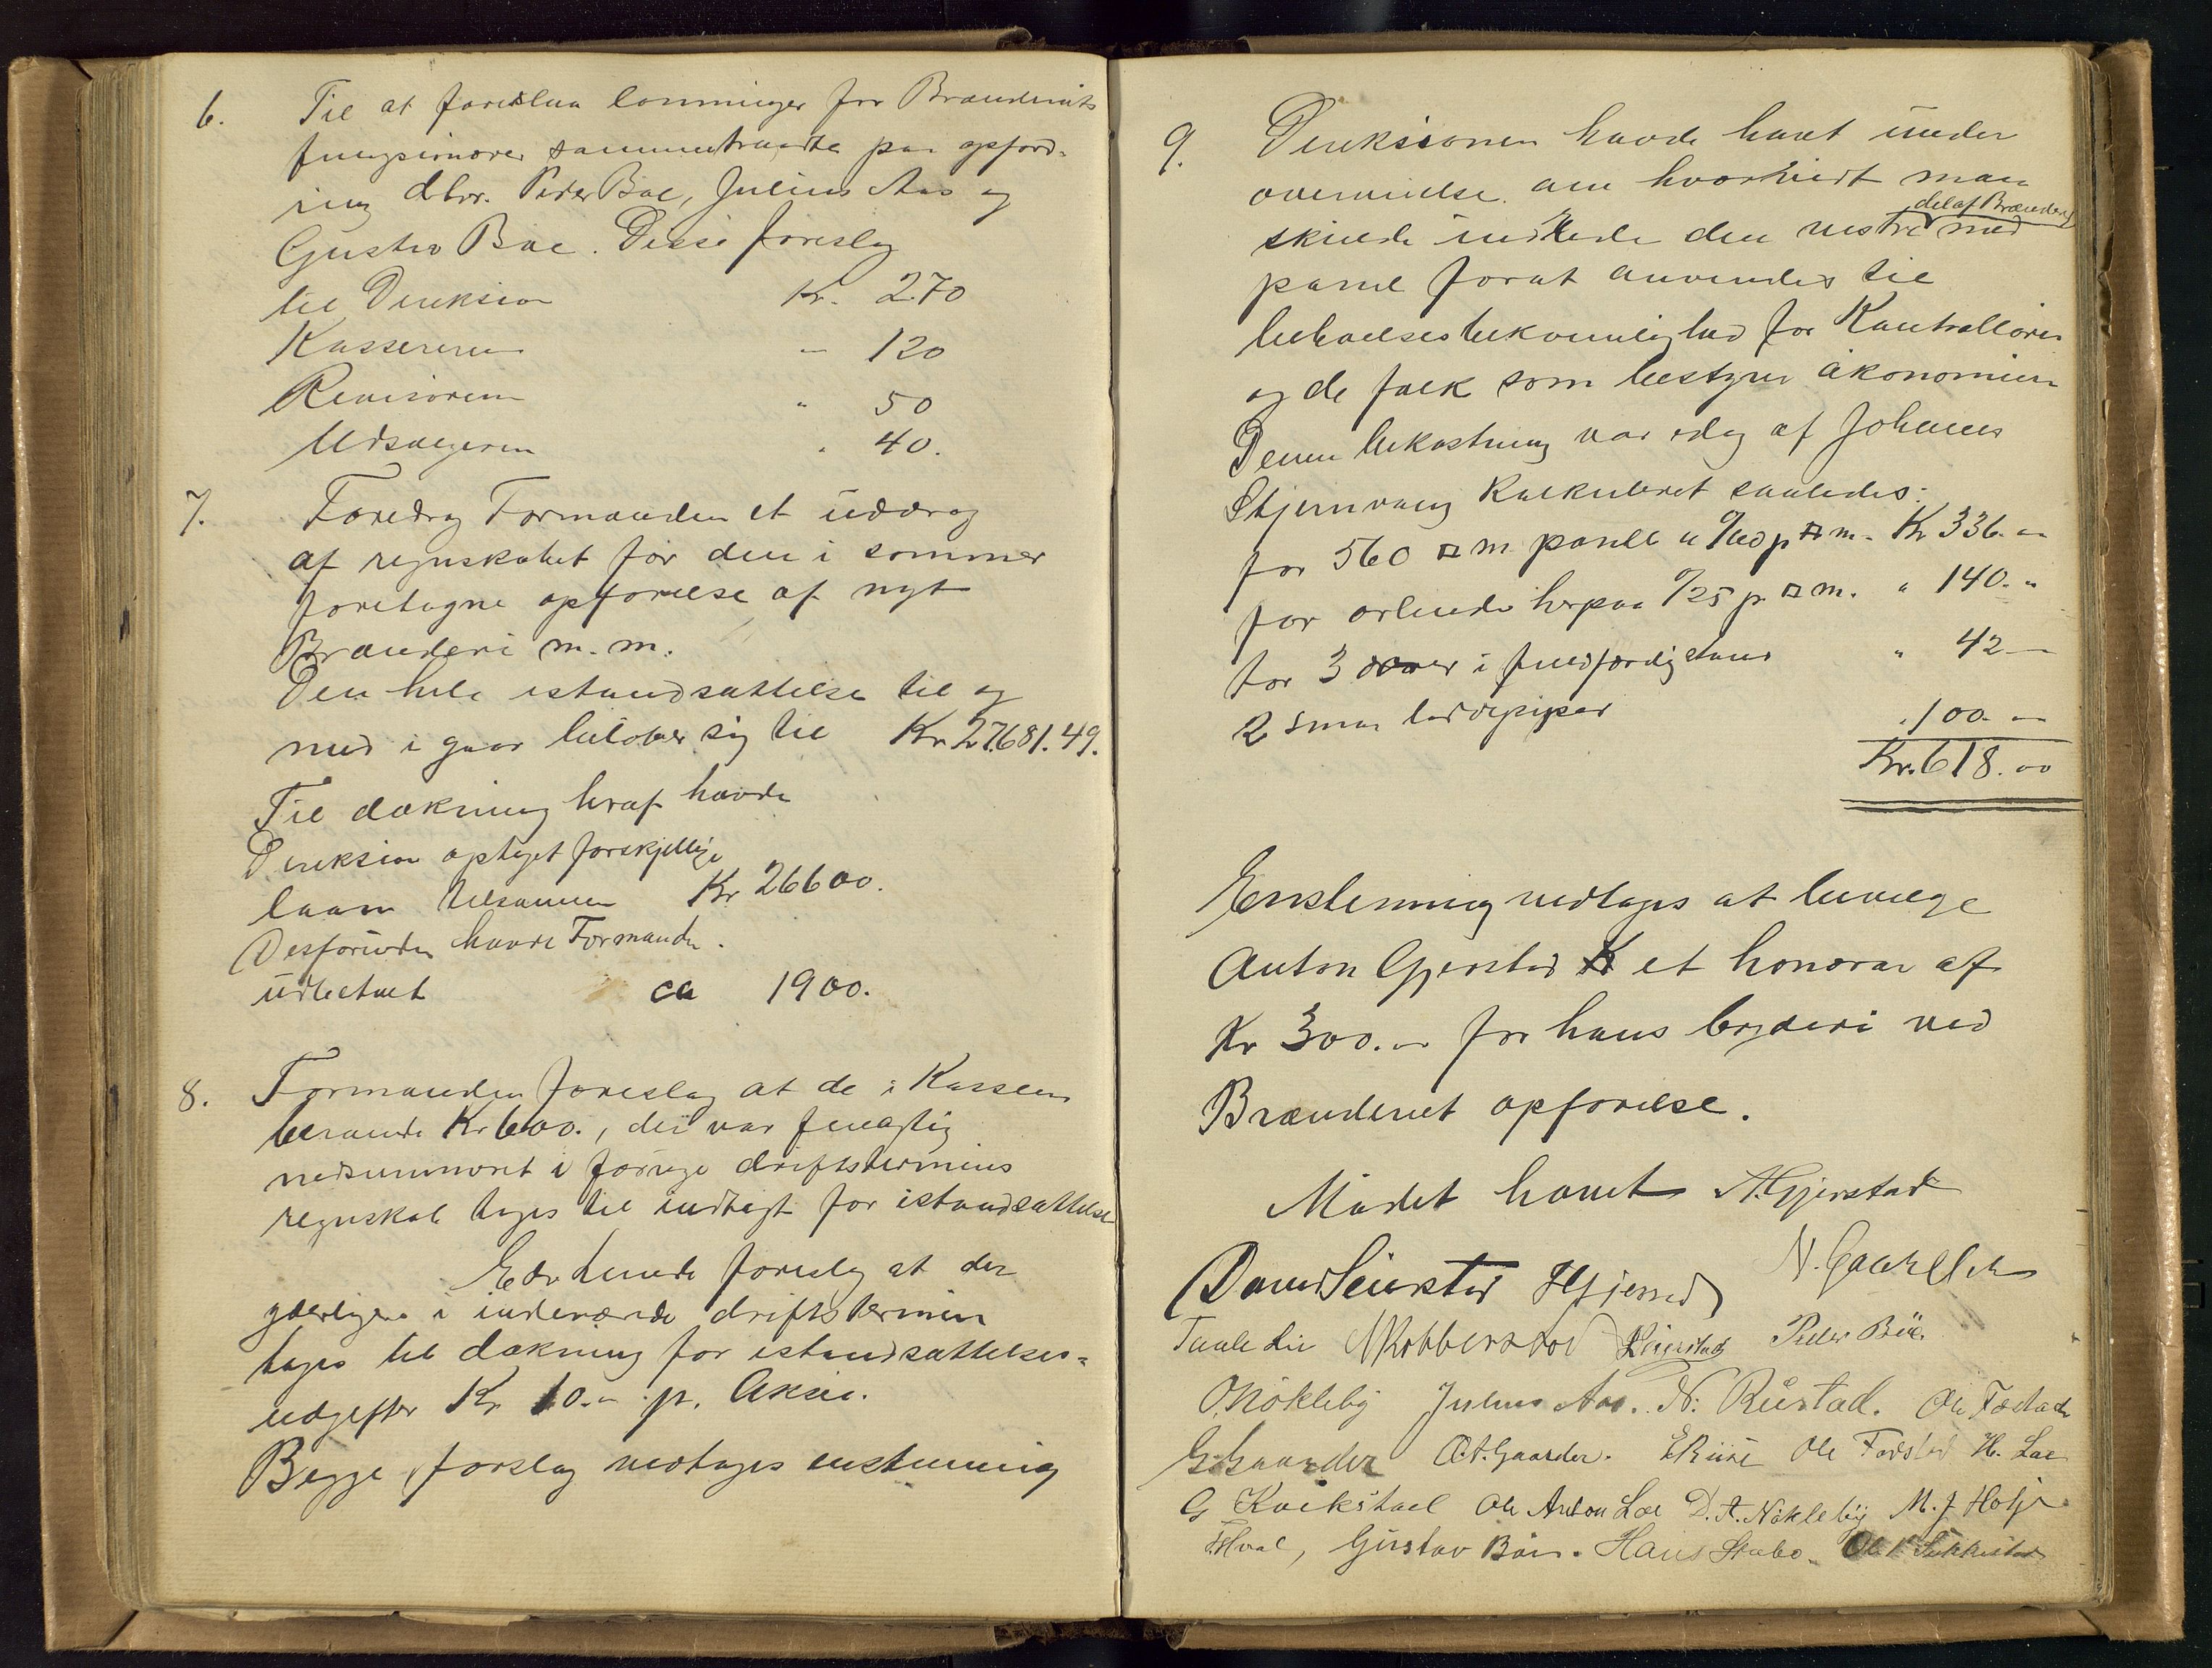 6. Til at foreslaa lønninger for Brænderiets
fungsionærer sammentraadte paa opford-
ring dhrr. Peder Bøe, Julius Aas og
Gustav Bøe. Disse foreslog
til Direksion Kr. 270
Kassereren " 120
Revisoren " 50
Udsælgeren " 40.
7. Foredrog Formanden et uddrag
af regnskabet for den i sommer
foretagne opførelse af nyt
Brænderi m.m.
Den hele istandsættelse til og
med i gaar beløber sig til Kr. 27681.49.
Til dækning heraf havde
Direksion optaget forskjellige
laan tilsammen Kr 26600.
Desforuden havde Formanden
udbetalt ca 1900.
8. Formanden foreslog at de i Kassen
værende Kr 600., der var feilagtig
nedsummeret i forrige driftstermins
regnskab toges til indtægt for istandsættelse
Edv. Lunde foreslog at der
yderligere i indeværende driftstermin
toges til dækning for istandsættelses-
udgifter Kr 10.- pr. Aksie.
Begge forslag vedtoges enstemmig
9. Direksionen havde havt under
overveielse om hvorvidt man
del af Brænderi
skulde indkede den vestre med
panel forat anvendes til
beboelsesbekvemlighed for Kontrolløren
og de folk som bestyrer økonomien
Denne bekostning var idag af Johannes
Stjernvang kalkuleret saaledes:
for 560 □ m. panel a 0/60 p □ m. Kr 336.00
for arbeide herpaa 0/25 p. □ m. " 140. "
for 3 dører i fuldfærdig stand " 42 —
2 smaa teglpiper " 100.00
Kr. 618.00
Enstemmig vedtoges at bevilge
Anton Gjerstad et honorar af
Kr 300.00 for hans bryderi ved
Brænderiet opførelse.
Mødet hævet A. Gjerstad
N. Gaarder
Taale Lie N Kobberstad Leirstad Peder Bøe
O. Nökleby Julius Aas. N. Rustad. Ole Fodstad
G. Gaarder O. A. Gaarder. E Riise Ole Fodstad H. Loe
G Kolkstad Ole Anton Loe D. A. Nökleby M. J. Hotje
Hval, Gustav Böe. Hans Stabo. Ole